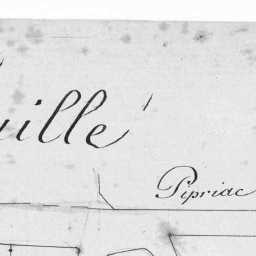 uillé
Pipriac